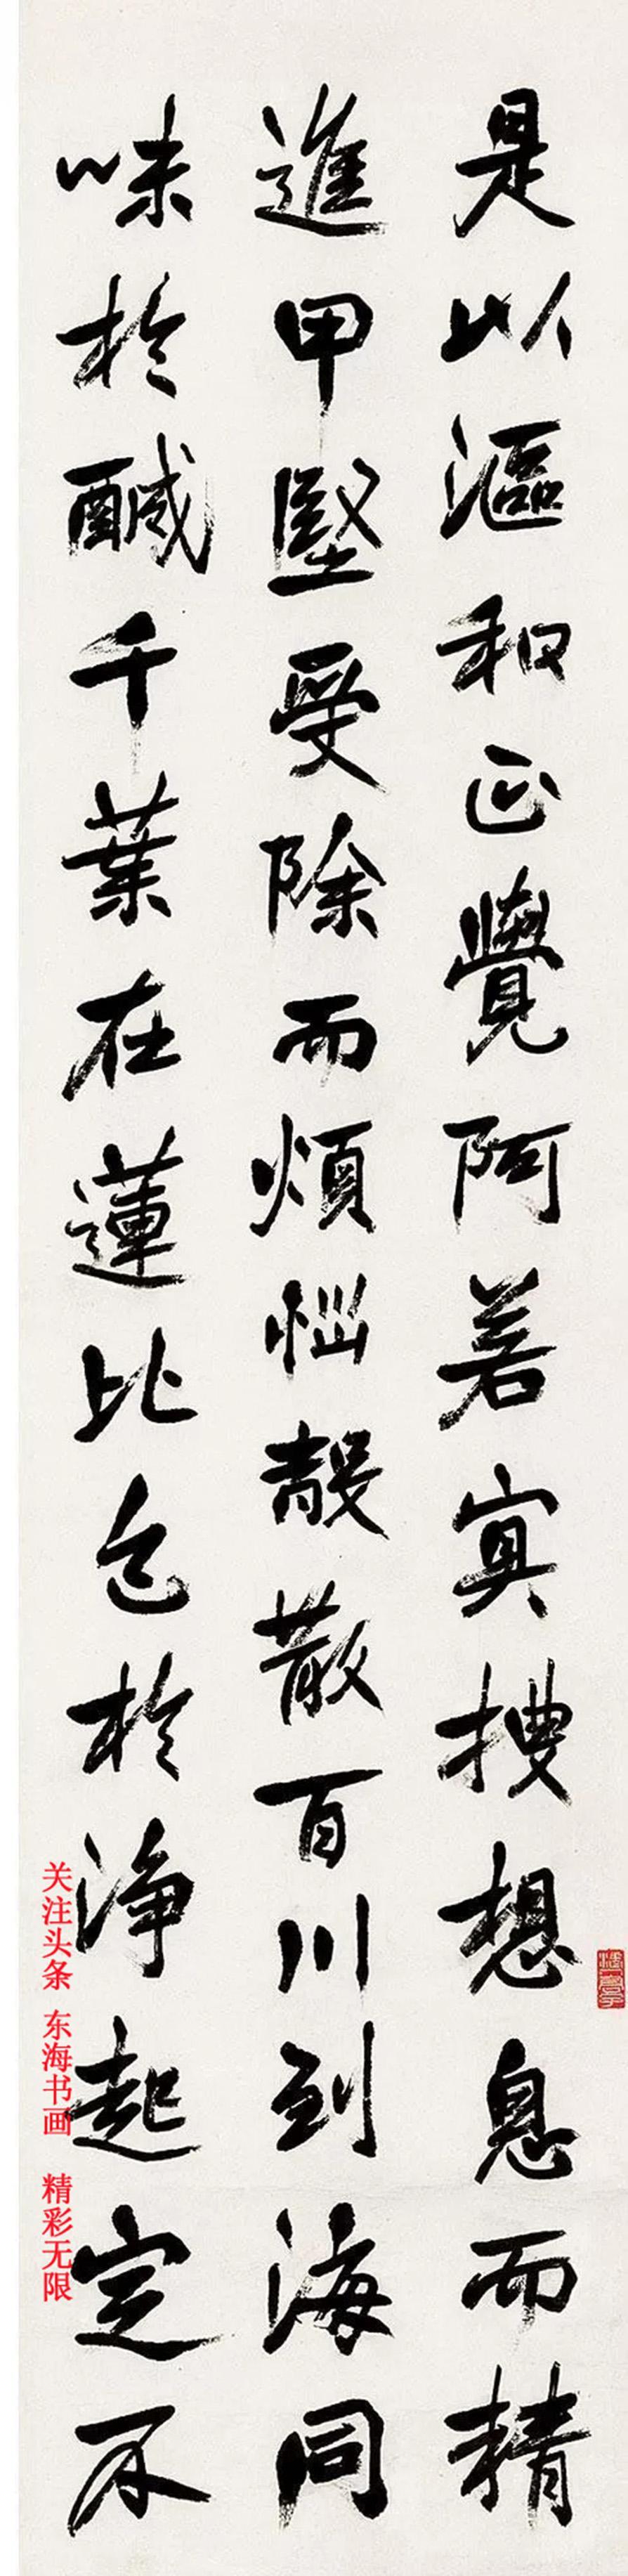 是以漚和正覺阿若冥搜想息而精
進甲堅受除而煩惱殼散百川到海同
味於醎千葉在蓮比色於淨起定不
关注头条 东海书画 精彩无限